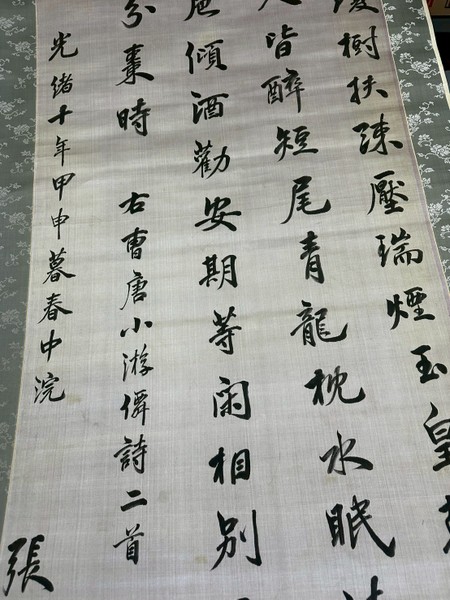 樹扶疎壓瑞煙玉皇
皆醉短尾青龍枕水眠
卮傾酒勸安期等閑相別
分棗時 右曹唐小游僊詩二首
光緒十年甲申暮春中浣
張